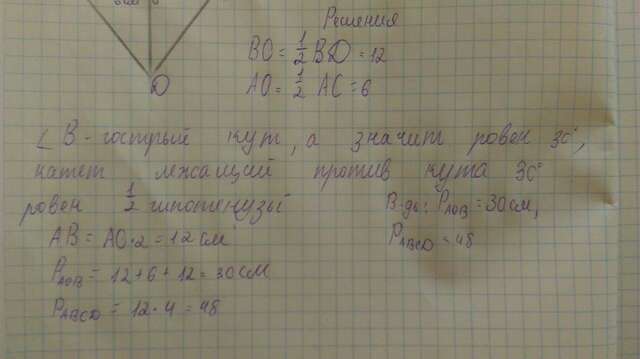 Решения
D
BO = 1/2 BD = 12
AO = 1/2 AC = 6
∠ B - гострый кут, а значит ровен 30°,
катет лежащий против кута 30°
ровен 1/2 гипотенузы
AB = AO · 2 = 12 см
P_AOB = 12 + 6 + 12 = 30 см
P_ABCD = 12 · 4 = 48
В-дь: P_AOB = 30 см,
P_ABCD = 48